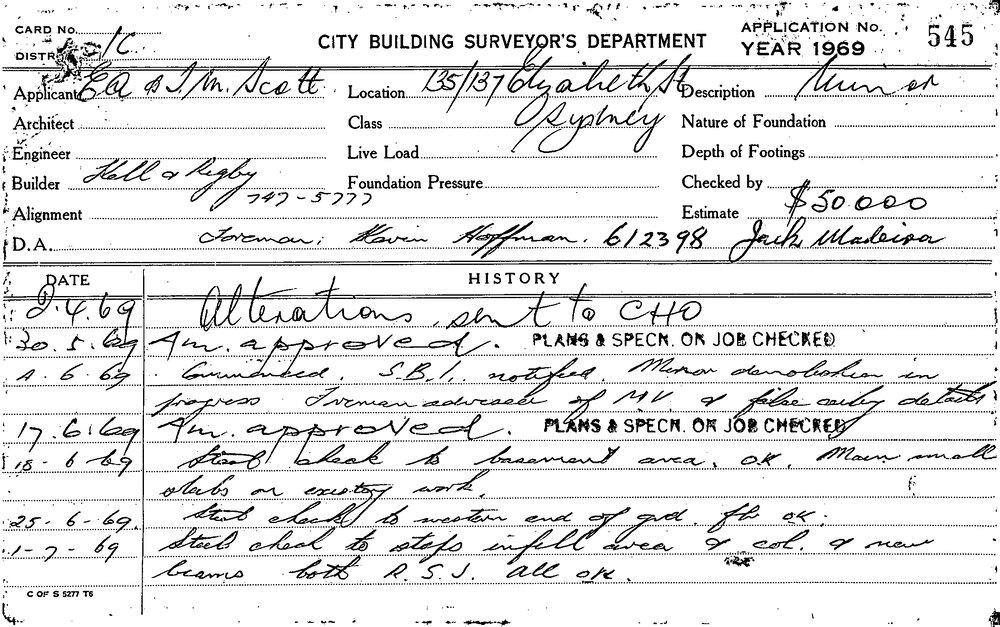 CARD No. 1C
CITY BUILDING SURVEYOR'S DEPARTMENT
APPLICATION No. 545
DISTR
YEAR 1969
Applicant E A & I. M. Scott Location 135/137 Elizabeth St Description Minor
Architect Class Sydney Nature of Foundation
Engineer Live Load Depth of Footings
Builder Hall & Rigby Foundation Pressure Checked by
747-5777
Alignment Estimate $50.000
D.A. Foreman: Kevin Hoffman. 612398 Jack Madeisa
DATE HISTORY
2.4.69 Alterations sent to CHO
30.5.69 Am. approved. PLANS & SPECN. ON JOB CHECKED
4.6.69 Commenced. S.B.I. notified. Minor demolition in
progress Foreman advised of MV & false details
17.6.69 Am. approved. PLANS & SPECN. ON JOB CHECKED
18-6-69 Steel check to basement area, OK. Main small
slabs on existing work.
25-6-69. Steel check to western end of grd. flr OK.
1-7-69 Steel check to steps infill area & col. & new
beams both R.S.J. all OK.
C OF S 5277 T6